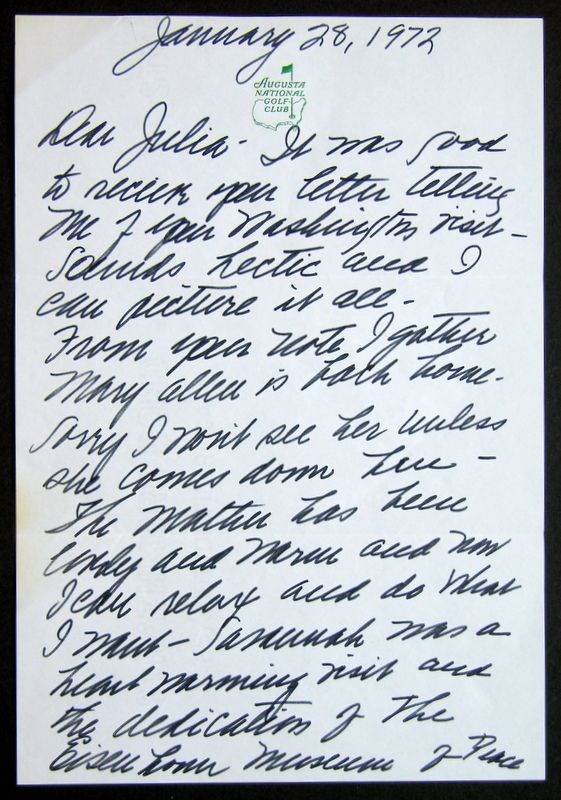 January 28, 1972
AUGUSTA
NATIONAL
GOLF
CLUB
Dear Julia - It was good
to receive your letter telling
me of your Washington visit -
Sounds hectic and I
can picture it all.
From your note I gather
Mary Allen is back home.
Sorry I won't see her unless
she comes down here -
The weather has been
lovely and warm and now
I can relax and do what
I want - Savannah was a
heart warming visit and
the dedication of the
Eisenhower Museum of Peace